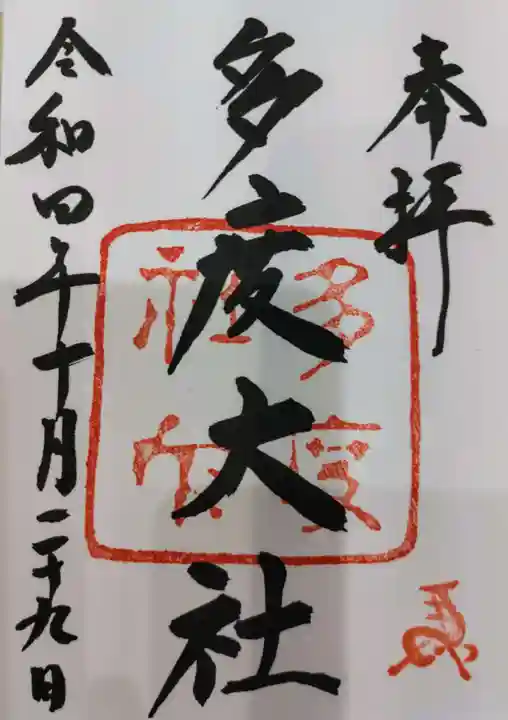 奉拝
多度大社
多度
社
令和四年十月二十九日